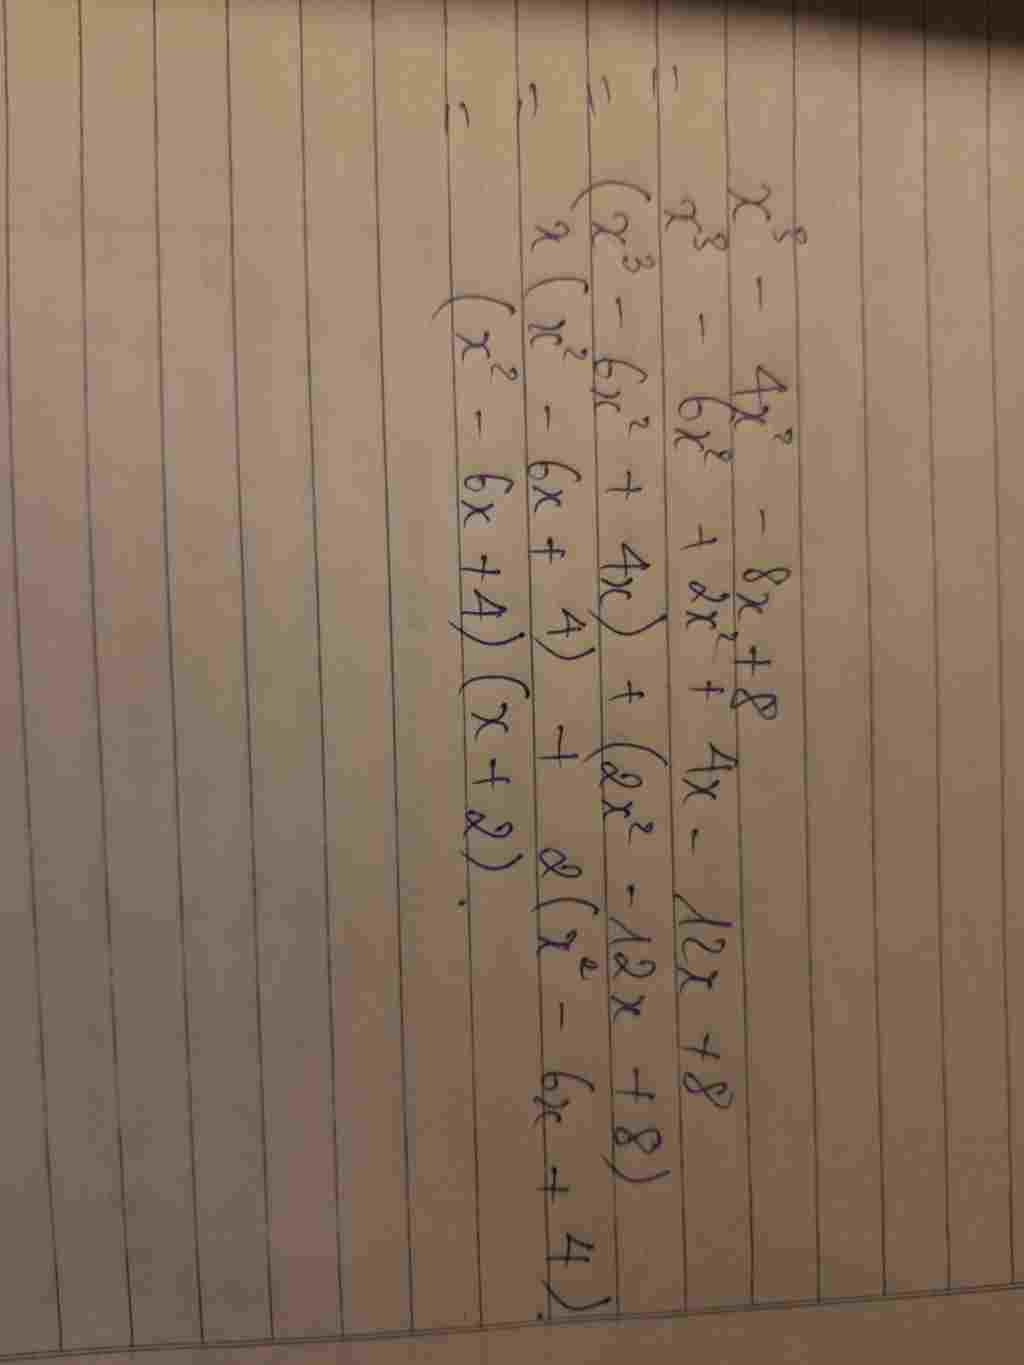 x³ - 4x² - 8x + 8
= x³ - 6x² + 2x² + 4x - 12x + 8
= (x³ - 6x² + 4x) + (2x² - 12x + 8)
= x(x² - 6x + 4) + 2(x² - 6x + 4).
= (x² - 6x + 4)(x + 2).